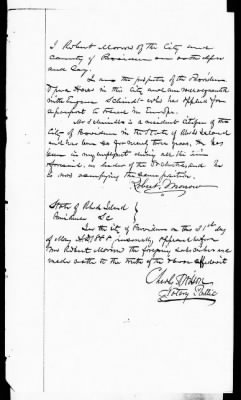 I Robert Morrow of the City and
County of Providence am on the oath
and Say.
I am the proprietor of the Providence
Opera House in this city and am acquainted
with Eugene Schmidt who has applied for
a passport to travel in Europe.
Mr Schmidt is a resident citizen of the
City of Providence in the State of Rhode Island
and has been so for nearly three years. He has
been in my employ during all the time
aforesaid, as leader of the Orchestra, and he
is now occupying the same position.
Robert Morrow
State of Rhode Island }
Providence Sc }
In the city of Providence on this 31st day
of May A.D. personally appeared before
me Robert Morrow the foregoing subscriber and
made oath to the truth of the above affidavit
Notary Public